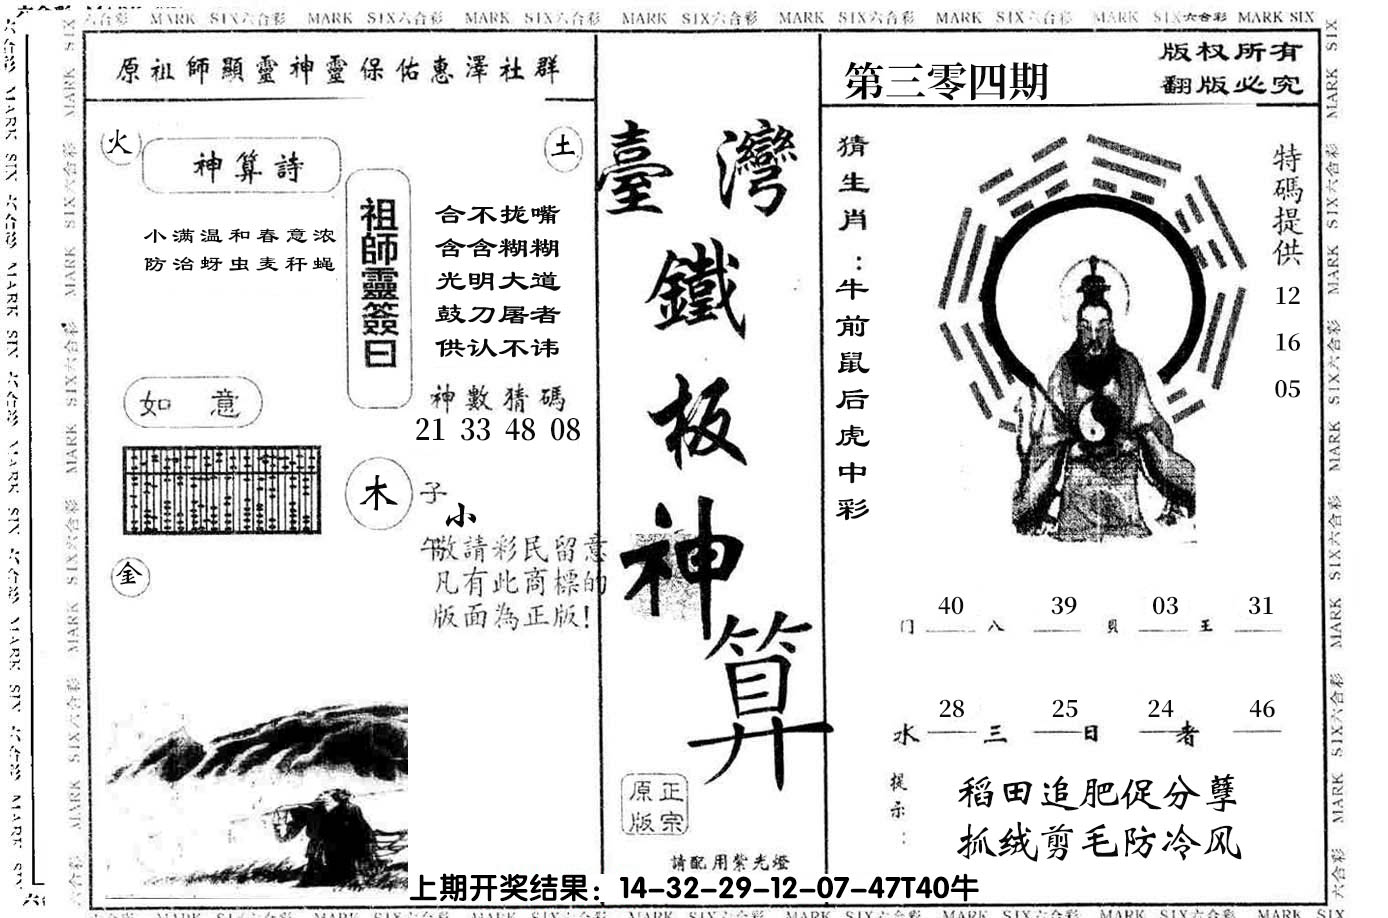 六合彩 MARK SIX六合彩 MARK SIX六合彩 MARK SIX六合彩 MARK SIX六合彩 MARK SIX六合彩 MARK SIX六合彩 MARK SIX六合彩 MARK SIX
原祖師顯靈神靈保佑惠澤社群
火
神算詩
土
小满温和春意浓
防治蚜虫麦秆蝇
祖師靈簽曰
合不拢嘴
含含糊糊
光明大道
鼓刀屠者
供认不讳
神數猜碼
21 33 48 08
如意
木
子
小
午
金
敬請彩民留意
凡有此商標的
版面為正版!
臺灣
鐵
板
神
算
正宗
原版
請配用紫光燈
第三零四期
版权所有
翻版必究
猜生肖:牛前鼠后虎中彩
特碼提供
12
16
05
40 39 03 31
门 八 貝 王
28 25 24 46
水 三 日 者
提示:
稻田追肥促分孽
抓绒剪毛防冷风
上期开奖结果：14-32-29-12-07-47T40牛